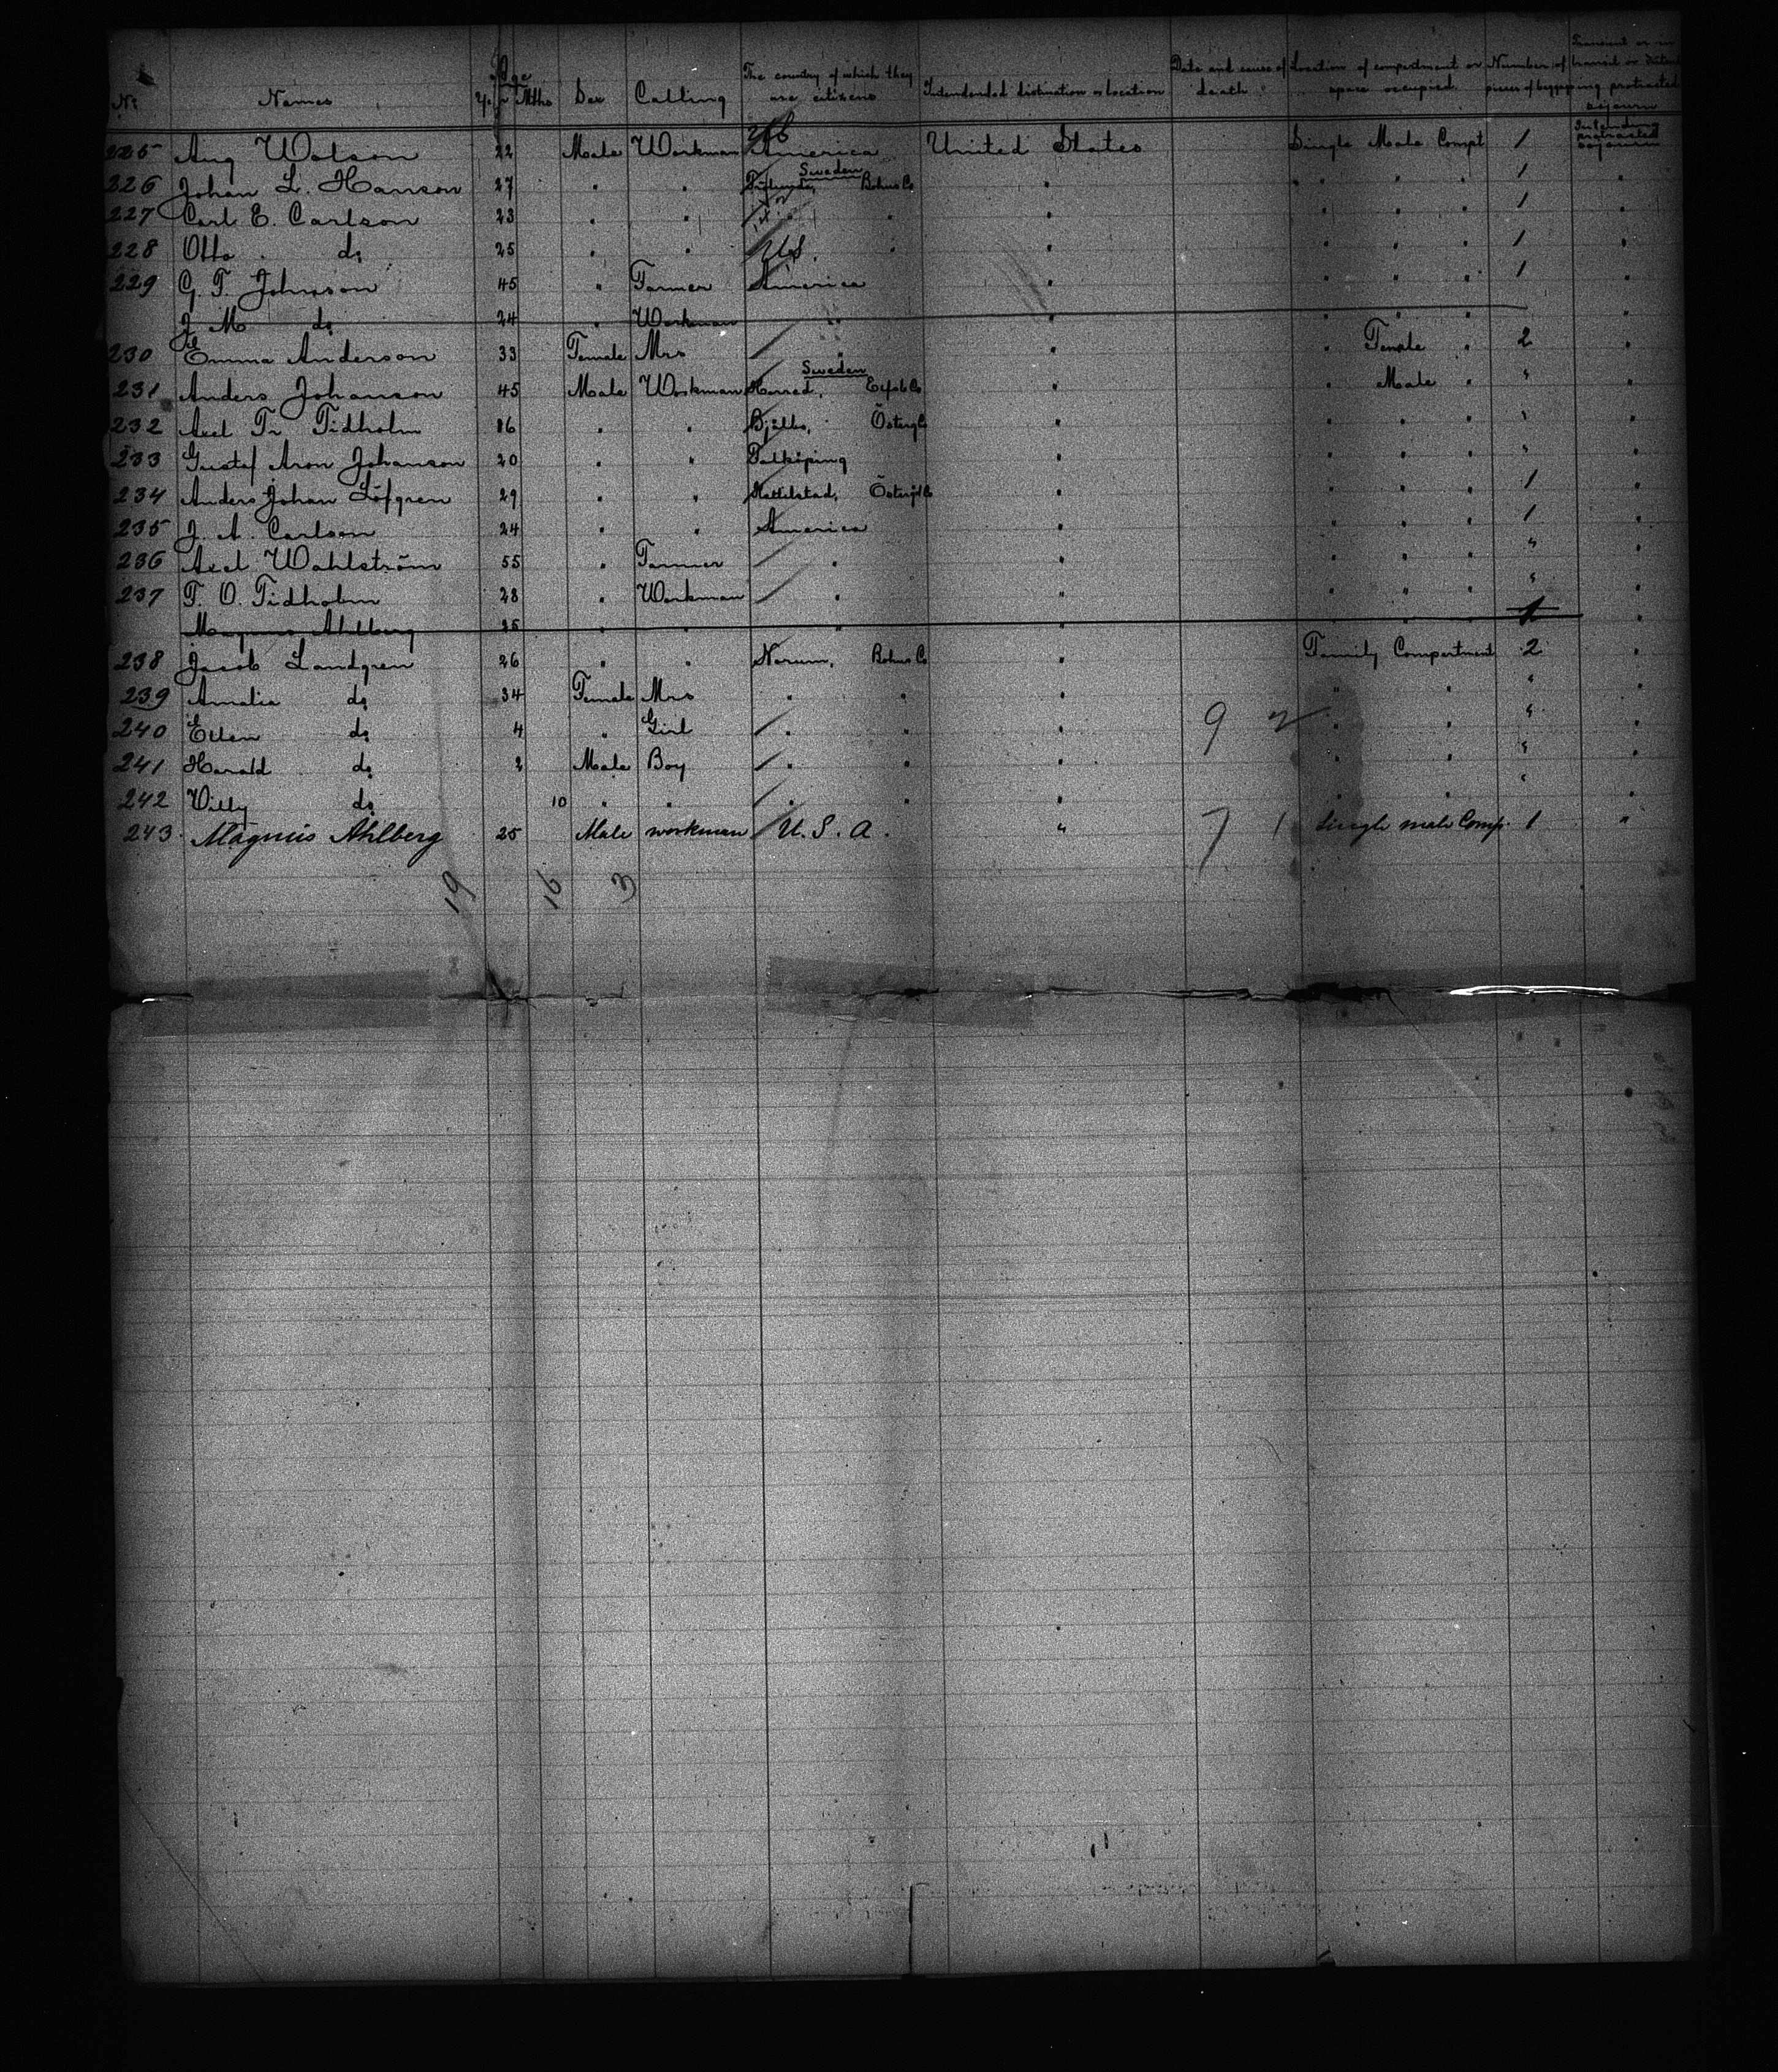 No Names Age Yrs Mths Sex Calling The country of which they are citizens Intendended distination or location Date and cause of death Location of compartment or space occupied. Number of pieces of baggage Transient or in transit or intending protracted sojourn
225 Aug Watson 22 Male Workman America United States Single Male Compt 1 Intending protracted sojourn
Sweden
226 Johan L. Hanson 27 " " Bohus Co " " " " 1 "
227 Carl E. Carlson 23 " " " " " " " 1 "
228 Otto do 25 " " U.S. " " " " " 1 "
229 G. F. Johnson 45 " Farmer America " " " " 1 "
J M do 24 " Workman " " " " " "
230 Emma Anderson 33 Female Mrs " " " Female " 2 "
Sweden
231 Anders Johanson 45 Male Workman Co " " Male " " "
232 Axel Fr Tidholm 16 " " Bjälbo, Östergl " " " " " "
233 Gustaf Aron Johanson 20 " " Falköping " " " " " "
234 Anders Johan Löfgren 29 " " Östergl Co " " " " 1 "
235 J. A. Carlson 24 " " America " " " " 1 "
236 Axel Wahlström 55 " Farmer " " " " " " "
237 F. O. Tidholm 28 " Workman " " " " " " "
Magnus Ahlberg 25 " " " " " " " 1 "
238 Jacob Landgren 26 " " Norum, Bohus Co " Family Compartment 2 "
239 Amalia do 34 Female Mrs " " " " " " "
240 Ellen do 4 " Girl " " " 9 2 " " " "
241 Harald do 2 Male Boy " " " " " " "
242 Willy do 10 " " " " " " " " "
243. Magnus Ahlberg 25 Male workman U. S. A. " 7 1 Single male Comp. 1 "
19 16 3